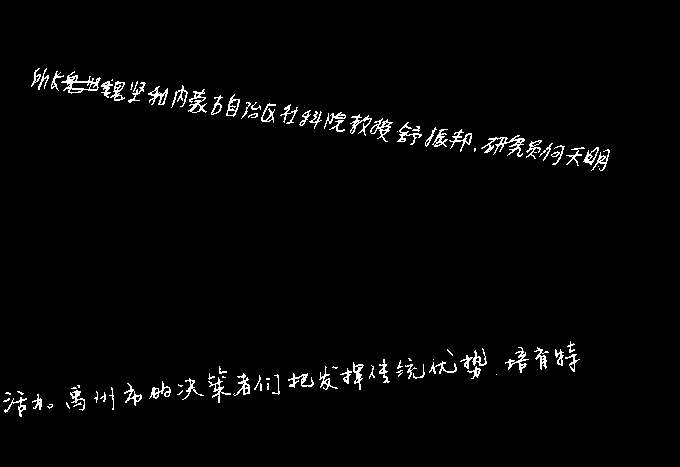 所长魏坚和内蒙古自治区社科院教授舒振邦、研究员何天明
活力。禹州市的决策者们把发挥传统优势、培育特